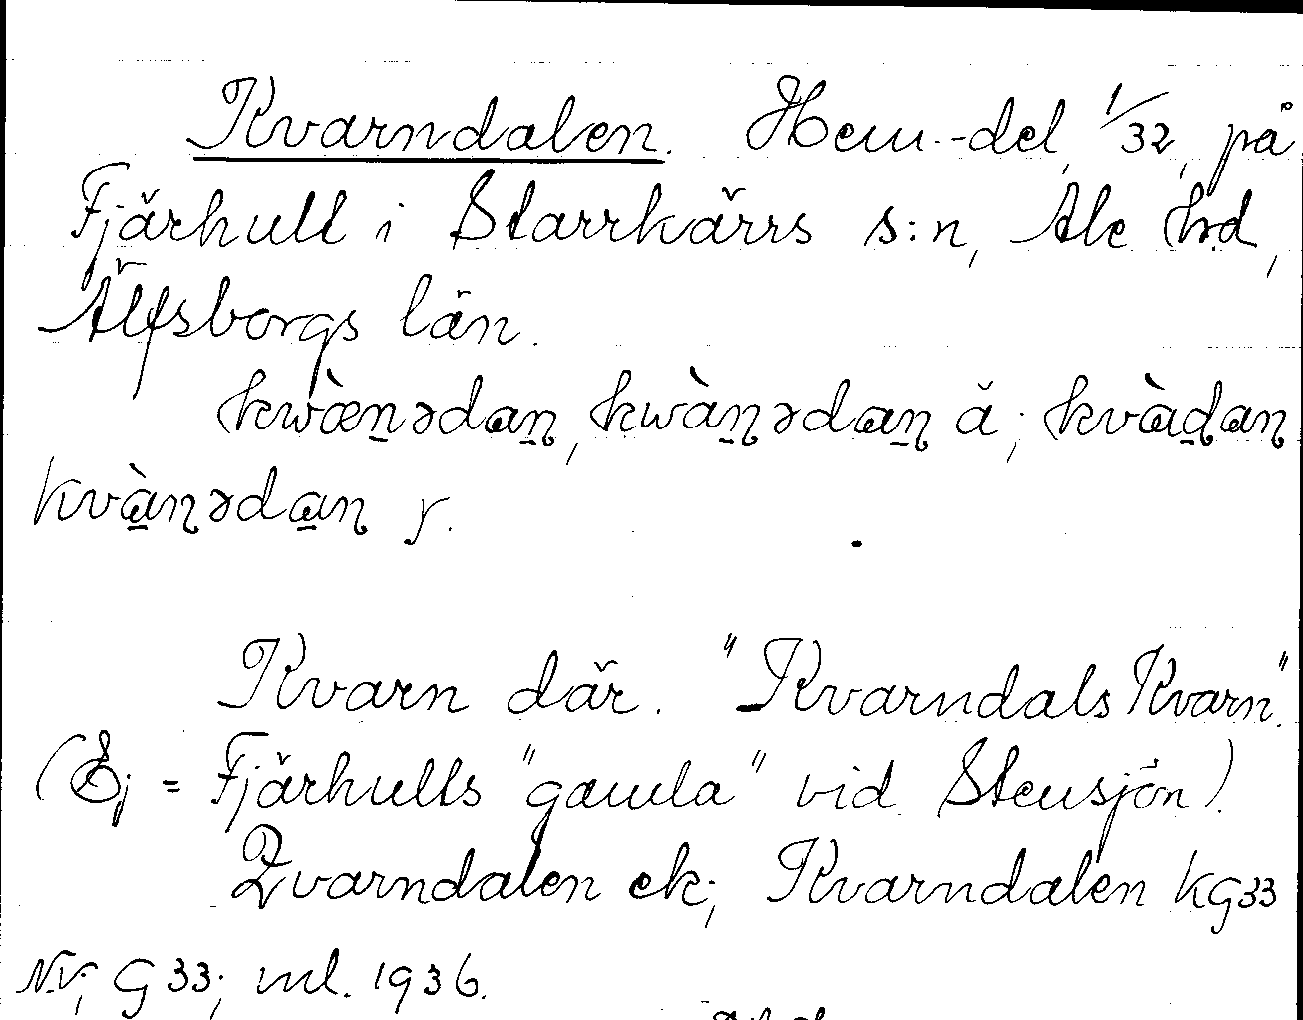 Kvarndalen. Hem.-del, 1/32, på
Fjärhult i Starrkärrs s:n, Ale hrd,
Älfsborgs län.
kwæ̀n̲ədan̲, kwàn̲ədan̲ ä; kvàd̲an
kvà̲nəda̲n y.
Kvarn där. "Kvarndals Kvarn".
(Ej = Fjärhults "gamla" vid Stensjön).
Qvarndalen ek; Kvarndalen KG33
NV, G 33; ml. 1936.